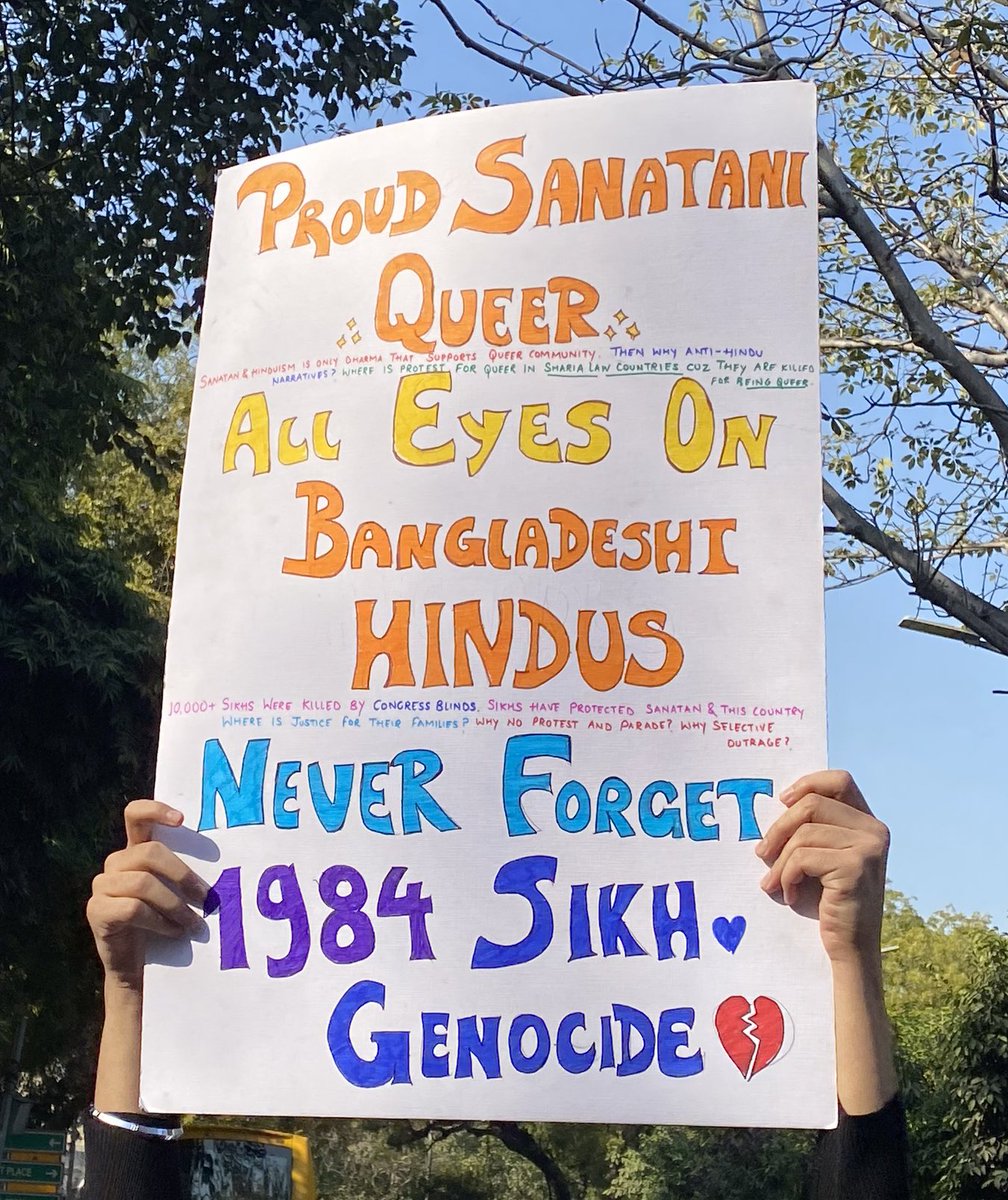 PROUD SANATANI
QUEER
SANATAN & HINDUISM IS ONLY DHARMA THAT SUPPORTS QUEER COMMUNITY. THEN WHY ANTI-HINDU
NARRATIVES? WHERE IS PROTEST FOR QUEER IN SHARIA LAW COUNTRIES CUZ THEY ARE KILLED
FOR BEING QUEER.
ALL EYES ON
BANGLADESHI
HINDUS
10,000+ SIKHS WERE KILLED BY CONGRESS BLINDS. SIKHS HAVE PROTECTED SANATAN & THIS COUNTRY
WHERE IS JUSTICE FOR THEIR FAMILIES? WHY NO PROTEST AND PARADE? WHY SELECTIVE
OUTRAGE?
NEVER FORGET
1984 SIKH
GENOCIDE
PLACE